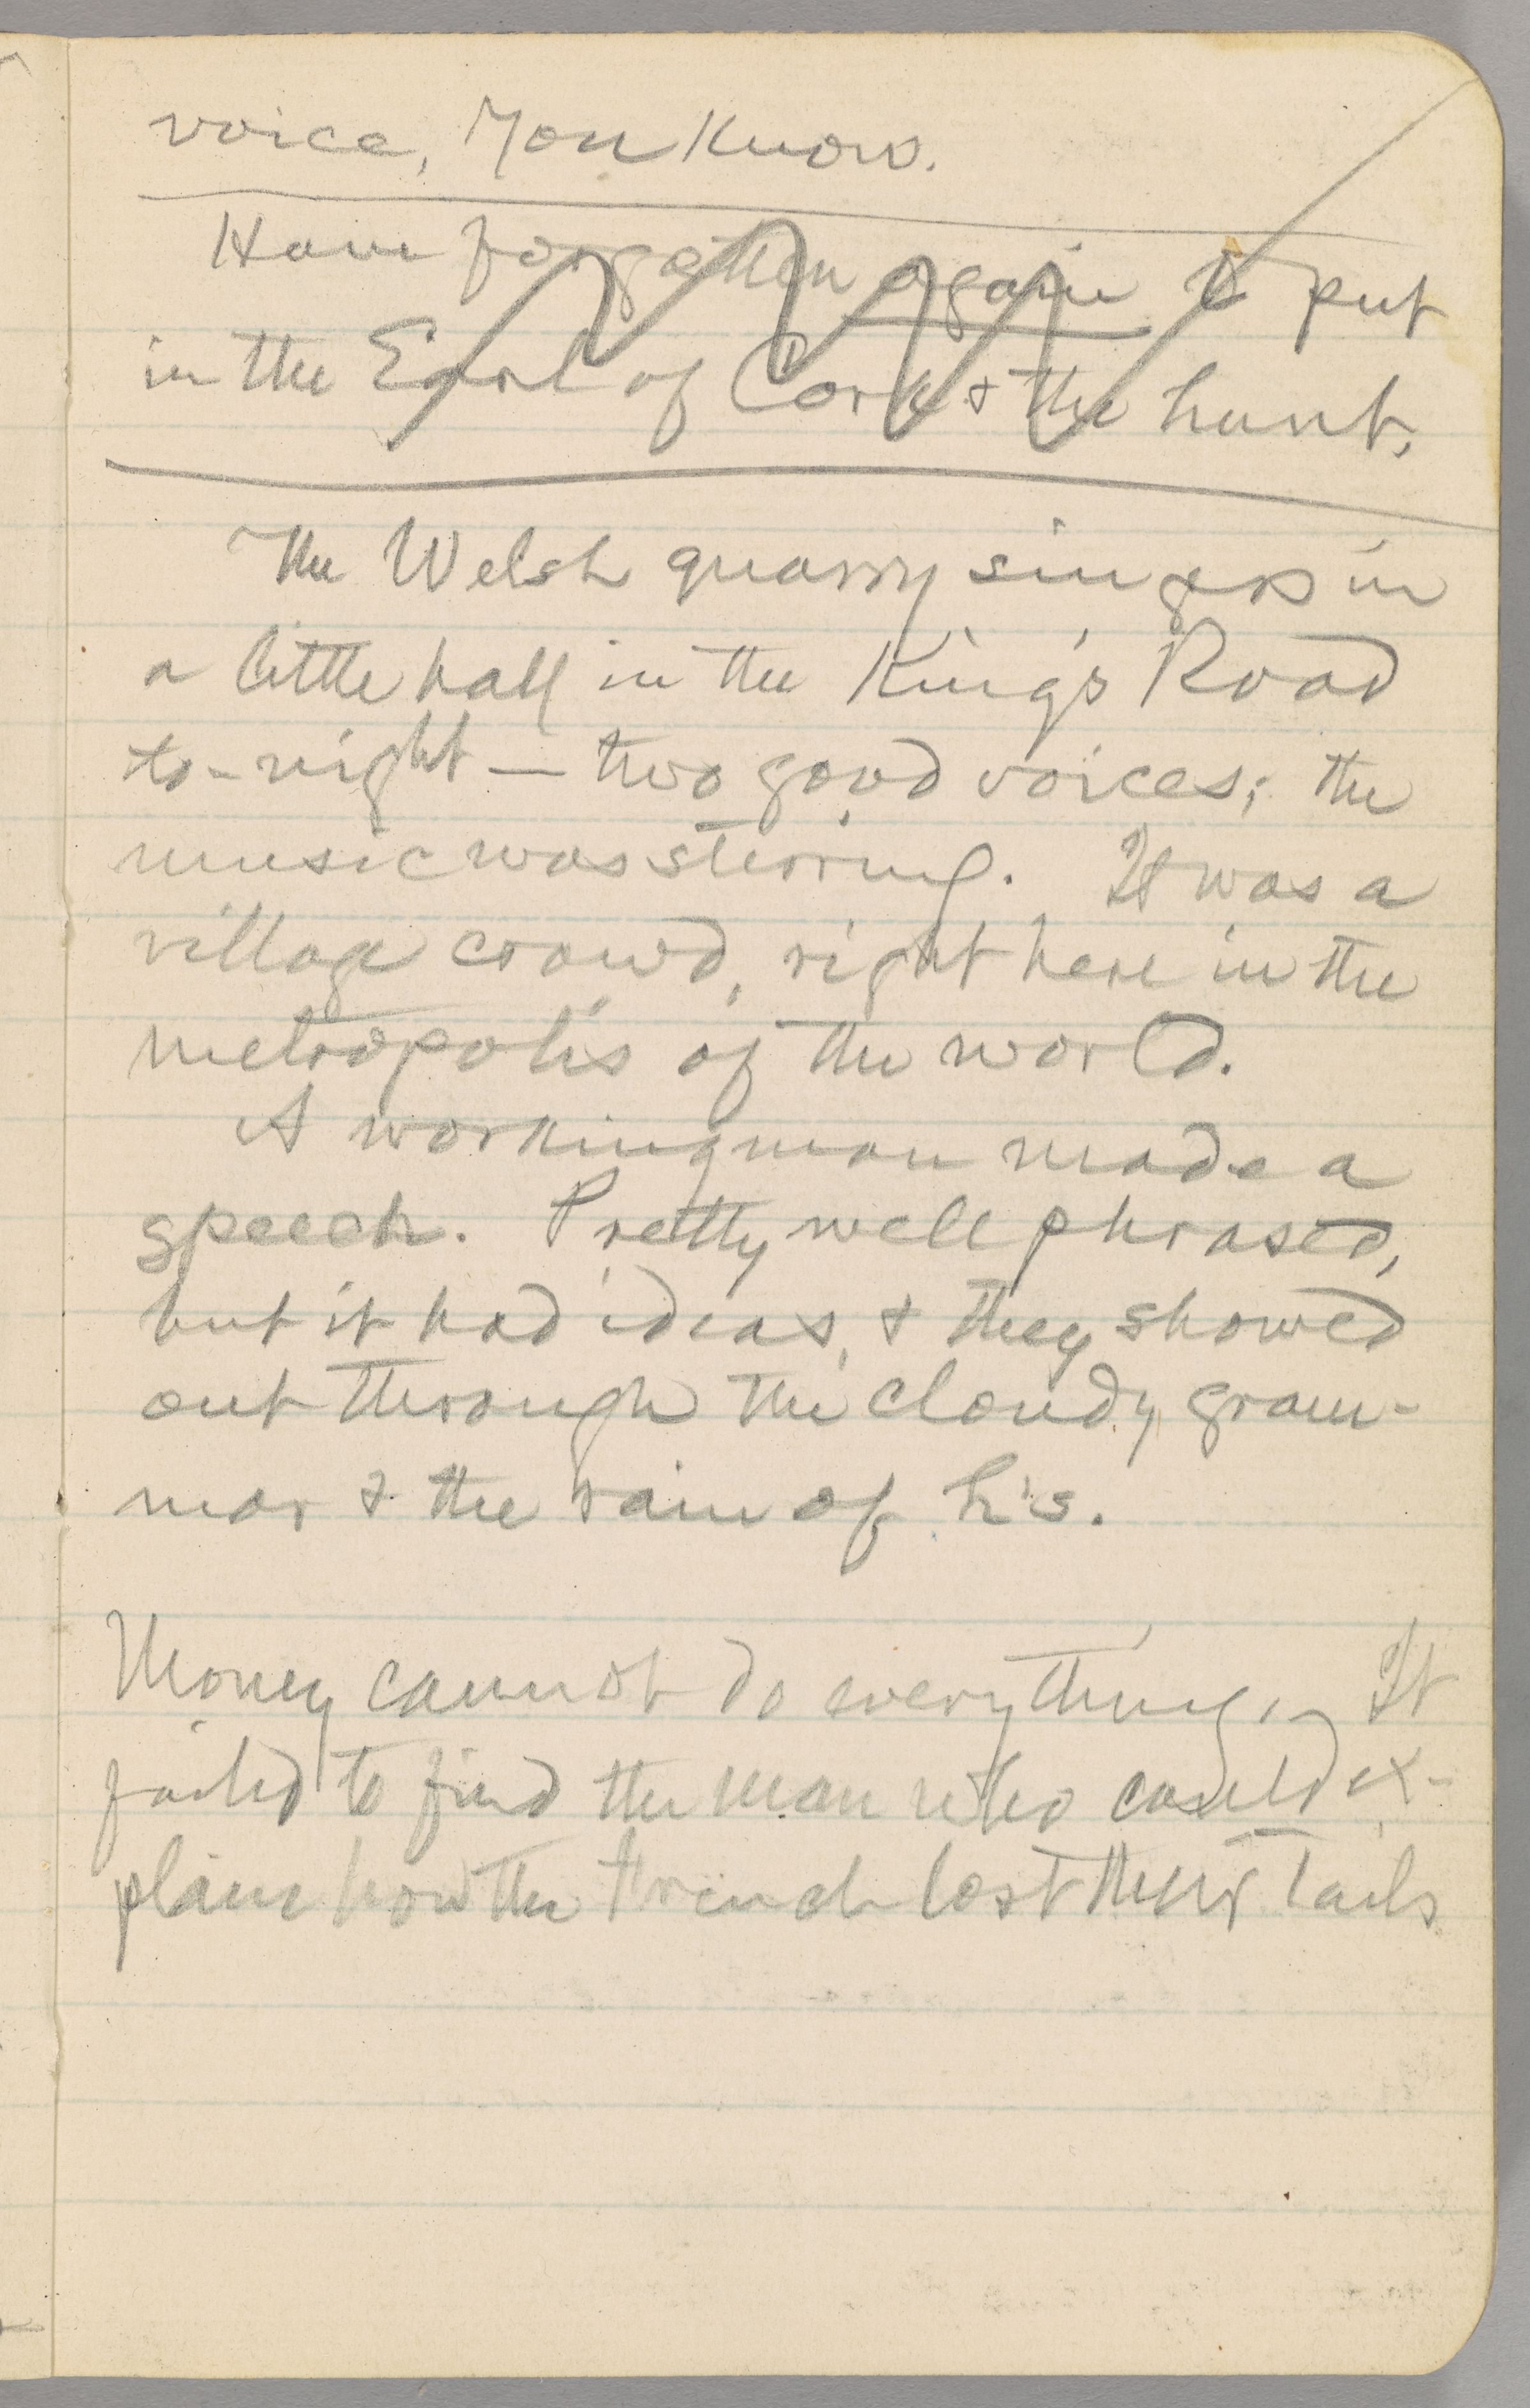 voice, You Know.
Have forgotten again to put
in the Earl of Cork & the hunt.
The Welsh quarry singers in
a little hall in the King's Road
to-night — two good voices; the
music was stirring. It was a
village crowd, right here in the
metropolis of the world.
A workingman made a
speech. Pretty well phrased,
but it had ideas, & they showed
out through the cloudy gram-
mar & the rain of h's.
Money cannot do everything. It
failed to find the man who could ex-
plain how the French lost their tails